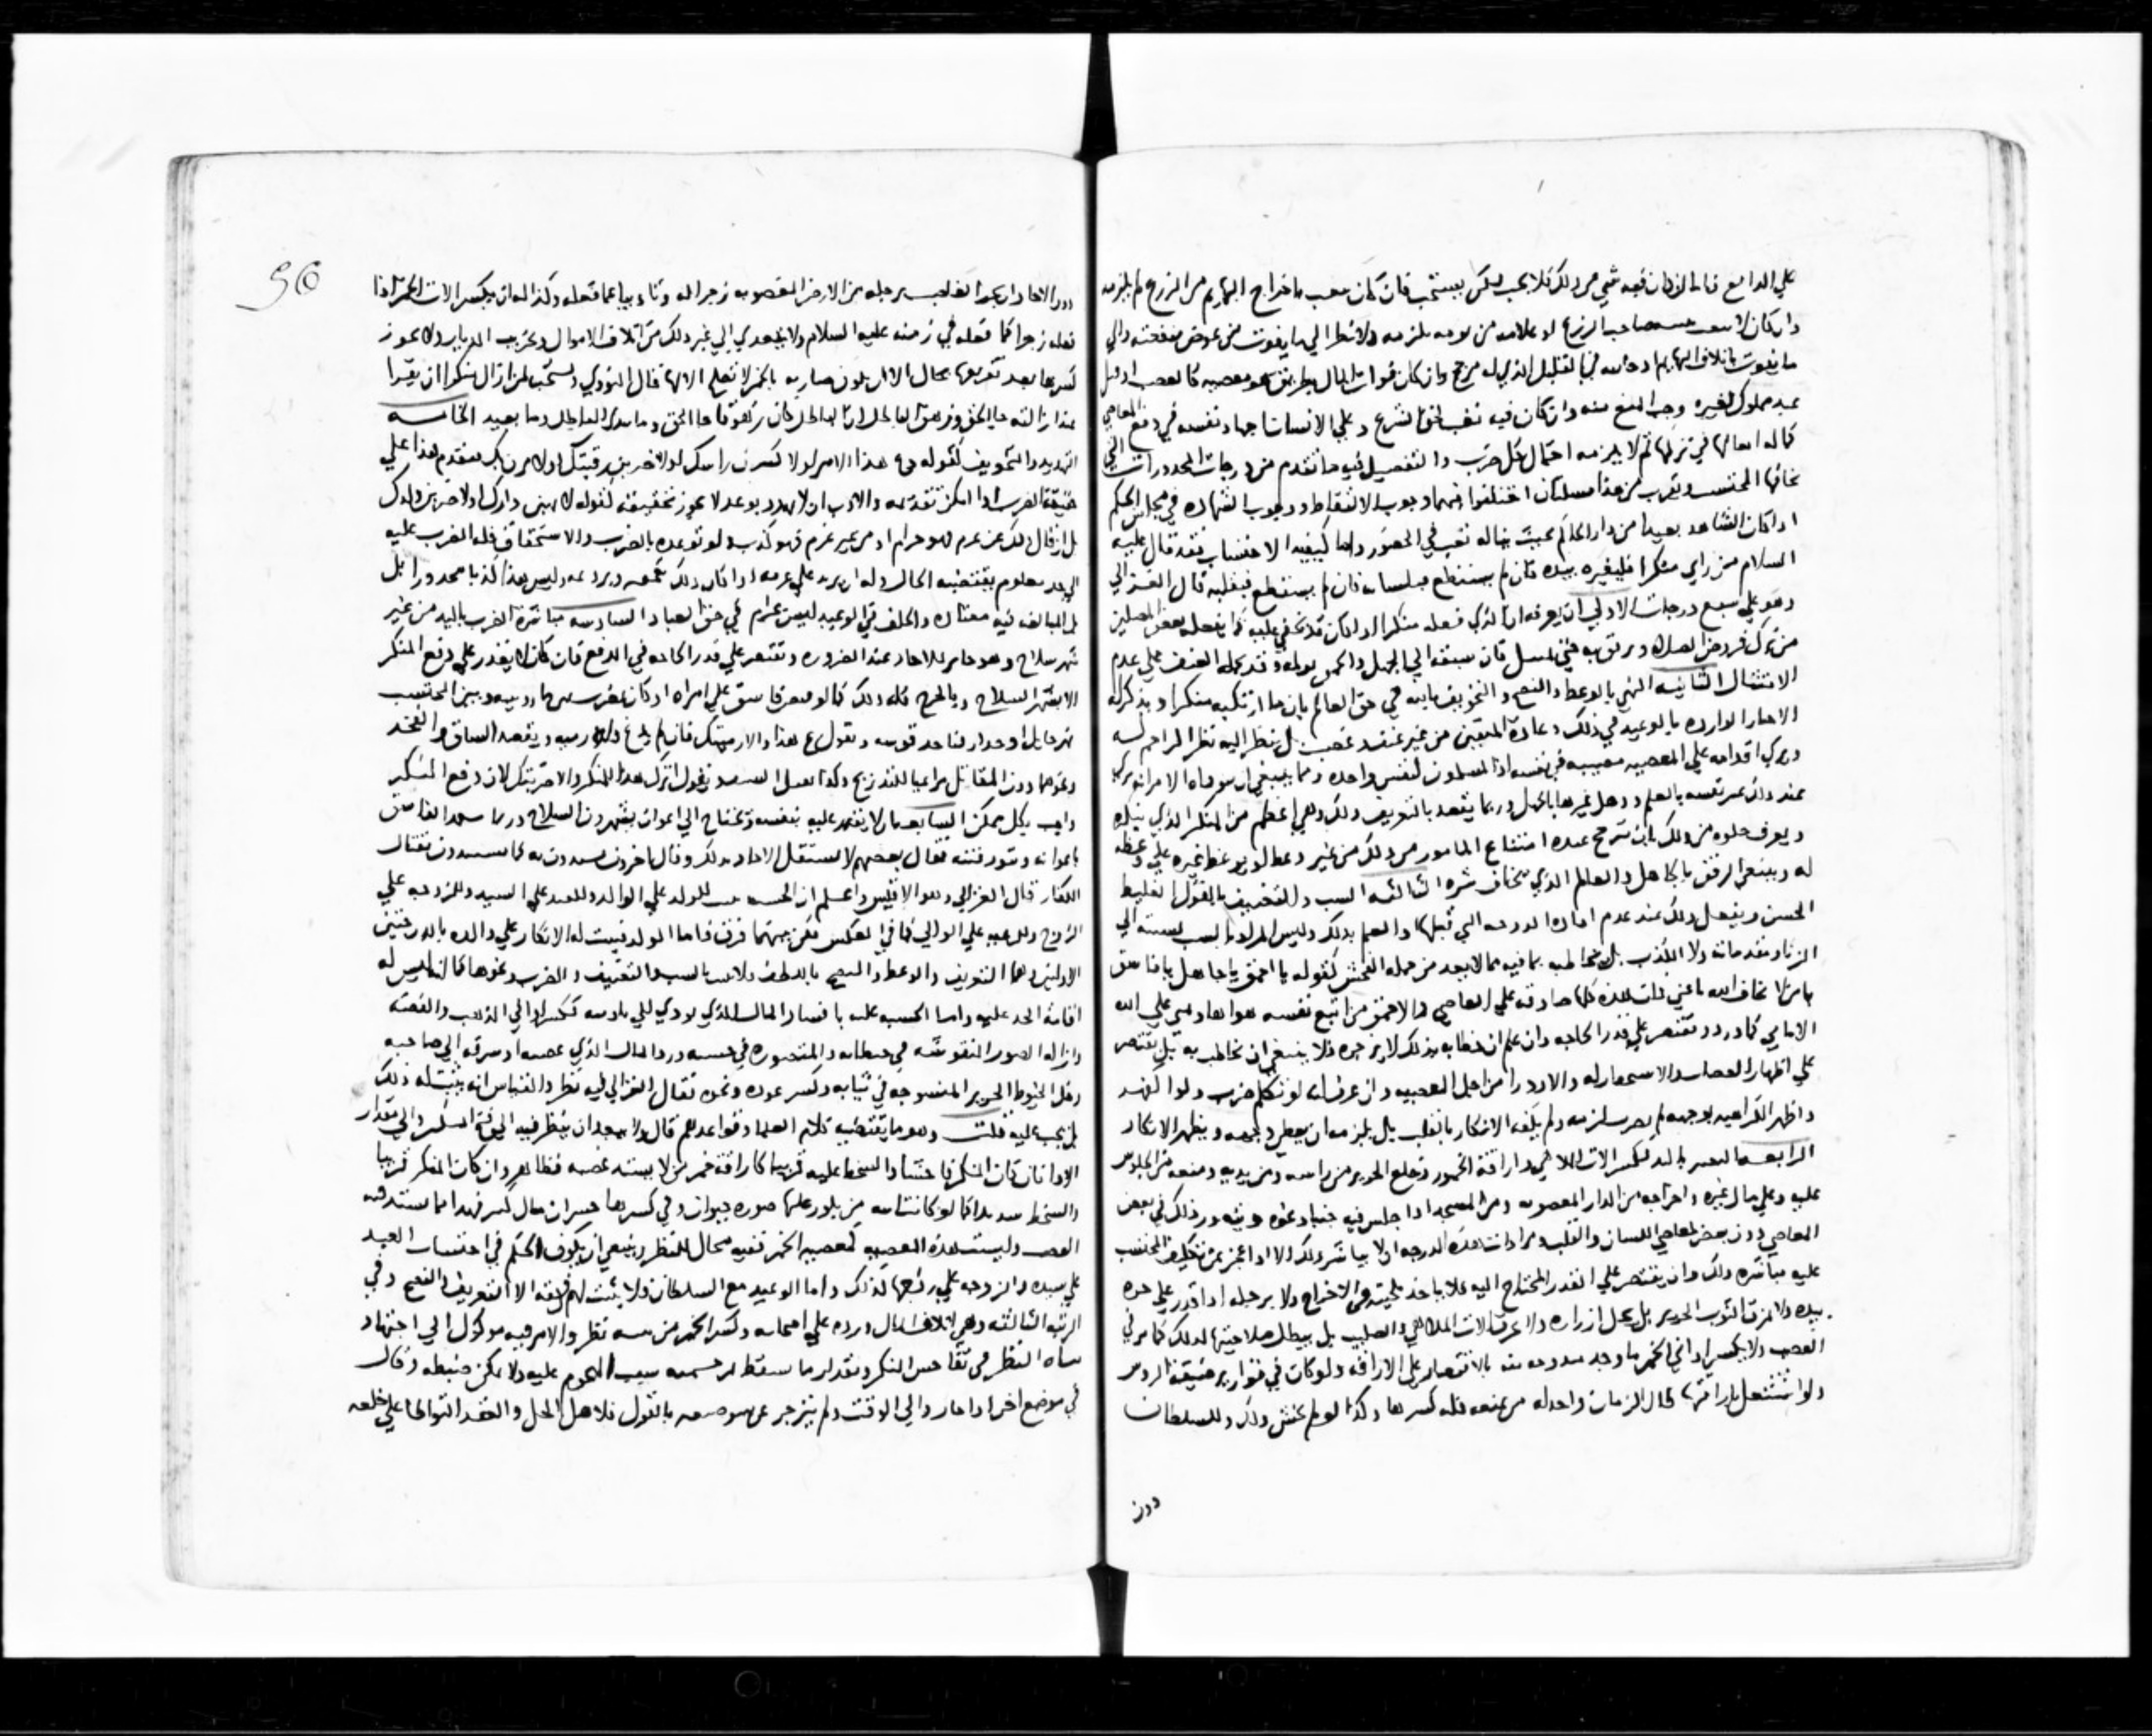 علي الدافع فان كان فيه شي من ذلك فلا يجب لكن يستحب فان كان يتعب باخراج البهايم من الزرع لم يلزمه
وان كان لا يتعب صاحب الزرع او علامه من نومه يلزمه ولا نظر الي ما يفوت من عوض منفعته والي
ما يفوت باتلاف البهايم القليل الذي له مرجح وان كان فوات المال بطريق هو معصيه كالغصب او قتل
عبد مملوك لغيره وجب المنع منه وان كان فيه تعب لحق الشرع وعلي الانسان جهاد نفسه في دفع المعاصي
كما له اتعابها في تركها ثم لا يلزمه احتمال كل ضرب والتفصيل فيه ما تقدم من درجات المحذورات التي
يخافها المحتسب ويقرب من هذا مسلتان اختلفوا فيهما وجوب الالتقاط ووجوب الشهاده في مجلس الحكم
اذا كان الشاهد بعيدا من دار الحاكم بحيث يناله تعب في الحضور واما كيفية الاحتساب فقد قال عليه
السلام من راي منكرا فليغيره بيده فان لم يستطع فبلسانه فان لم يستطع فبقلبه قال الغزالي
وهو علي سبع درجات الاولي ان يعرفه ان الذي فعله منكرا اذا كان قد يخفي عليه كما يفعله بعض المصلين
من ترك فروض الصلاه ويرفق به فان نسبته الي الجهل والحمق يولمه وقد يحمله العنف علي عدم
الامتثال الثانيه النهي بالوعظ والنصح والتخويف بالله في حق العالم بان ما ارتكبه منكرا ويذكر له
الاخبار الوارده بالوعيد في ذلك وعادة المتقين من غير عنف وغضب بل ينظر اليه نظر المراحم له
ويري اقدامه علي المعصيه مصيبه في نفسه اذ المسلمون كنفس واحده ومما ينبغي ان يتوقاه الامر انه يري
عند ذلك عز نفسه بالعلم وذل غيرها بالجهل وربما يقصد بالتعريف ذلك وهي اعظم من المنكر الذي ينكره
ويعرف خلوه من ذلك بان ترجح عنده امتناع المامور من ذلك من غير وعظ او بوعظ غيره علي وعظه
له وينبغي الرفق بالجاهل والعالم الذي يخاف شره الثالثه السب والتخفيف بالقول الغليظ
الحسن ويفعل ذلك عند عدم افاده الدرجه التي قبلها والعلم بذلك وليس المراد بالسب نسبته الي
الزنا ومقدماته ولا الكذب بل يخاطبه بما فيه مما لا يعد من جمله الفحش كقوله يا احمق يا جاهل يا فاسق
يا من لا تخاف الله يا غبي فان هذه كلها صادقه علي العاصي فالاحمق من اتبع نفسه هواها وتمني علي الله
الاماني كما ورد ويقتصر علي قدر الحاجه وان علم ان خطابه بذلك لا يزجره فلا ينبغي ان يخاطب به بل يقتصر
علي اظهار الغضب والاستحقار له والازدرا من اجل المعصيه وان عرف انه لو تكلم ضرب ولو اكفهر
واظهر الكراهيه بوجهه لم يضرب لزمه ولم يكفه الانكار بالقلب بل يلزمه ان يقطب وجهه ويظهر الانكار
الرابعه التغيير باليد ككسر الات الملاهي واراقة الخمور وخلع الحرير من راسه ومن بدنه ومنعه من الجلوس
عليه وعلي مال غيره واخراجه من الدار المغصوبه ومن المسجد اذا جلس فيه جنبا ونحوه وذلك في بعض
المعاصي دون بعض كمعاصي اللسان والقلب ومن اداب هذه الدرجه ان لا يباشر ذلك الا اذا عجز عن تكليف المحتسب
عليه مباشره ذلك وان يقتصر علي القدر المحتاج اليه فلا ياخذ بلحيته في الاخراج ولا برجله اذا قدر علي جره
بيده ولا يمزق الثوب الحرير بل يحل ازراره ولا يحرق الات الملاهي والصليب بل يبطل صلاحيتها لذلك كما مر في
الغصب ولا يكسر اواني الخمر ما وجد مندوحه عنه بالاقتصار علي الاراقه ولو كانت في قوارير ضيقة الروس
ولو اشتغل باراقتها لطال الزمان واحد له من يمنعه فله كسرها وكذا لو لم يخش ذلك وللسلطان
دون
56
دون الاحاد ان يجر الغاصب برجله من الارض المغصوبه زجرا له وتاديبا عما فعله وكذا له ان يكسر الات الخمر اذا
فعله زجرا كما فعله في زمنه عليه السلام ولا يتعدي الي غير ذلك من اتلاف الاموال وتخريب الديار ولا يجوز
كسرها بعد تفريغها بحال الا ان يكون ضاريه بالخمر لا تصلح الا لها قال النووي ويستحب لمن ازال منكرا ان يقرا
عند ازالته جا الحق وزهق الباطل ان الباطل كان زهوقا جا الحق وما يبدي الباطل وما يعيد الخامسه
التهديد والتخويف كقوله دع هذا الامر او لا كسرن راسك او لاضربن رقبتك او لامرن بك فيقدم هذا علي
حقيقة الضرب اذا امكن تقدمه والادب ان لا يهدد بوعد لا يجوز تحقيقه كقوله لانهبن دارك او لاضربن ولدك
بل ان قال ذلك عن عزم فهو حرام او من غير عزم فهو كذب ولو توعده بالضرب والاستخفاف فله الضرب عليه
الي حد معلوم يقتضيه الحال وله ان يزيد علي عزمه اذا كان ذلك يقمعه ويردعه وليس هذا كذبا محذورا بل
المبالغه فيه معتاده والخلف في الوعيد ليس بحرام في حق العباد السادسه مباشرة الضرب باليد من غير
شهر سلاح وهو جايز للاحاد عند الضروره ويقتصر علي قدر الحاجه في الدفع فان كان لا يقدر علي دفع المنكر
الا بشهر السلاح وبالجرح فله ذلك كما لو قبض فاسق علي امراه او كان يضرب بمزمار وبينه وبين المحتسب
نهر حايل او جدار فياخذ قوسه ويقول دع هذا والا رميتك فان لم يدع فله رميه ويقصد الساق والفخذ
ونحوهما دون المقاتل مراعيا للتدريج وكذا يسل السيف ويقول اترك هذا المنكر والا ضربتك لان دفع المنكر
واجب بكل ممكن السابعه ان لا يقدر عليه بنفسه ويحتاج الي اعوان يشهرون السلاح وربما يستمد الفاسق
باعوانه وتثور فتنه فقال بعضهم لا يستقل الاحاد بذلك وقال اخرون يستبدون به كما يستبدون بقتال
الكفار قال الغزالي وهو الاقيس واعلم ان الحسبه تثبت للولد علي الوالد وللعبد علي السيد وللزوجه علي
الزوج وللرعيه علي الوالي كما في العكس لكن بينهما فرق فاما الولد فيثبت له الانكار علي والده بالدرجتين
الاوليين وهما التعريف والوعظ والنصح باللطف ولا يجب بالسب والتعنيف والضرب ونحوها كما انه ليس له
اقامة الحد عليه واما الحسبه عليه بافساد المال الذي يودي الي تاديبه ككسر اواني الذهب والفضه
وازاله الصور المنقوشه في حيطانه والمتصوره في خشبه ورد المال الذي غصبه او سرقه الي صاحبه
وحل الخيوط الحرير المنسوجه في ثيابه وكسر عوده ونحوه فقال الغزالي فيه نظر والقياس انه يثبت له ذلك
بل يجب عليه قلت وهو ما يقتضيه كلام العلما وقواعدهم قال ولا يبعد ان ينظر فيه الي قبح المنكر والي مقدار
الاذي فان كان المنكر فاحشا والسخط عليه قريبا كاراقة خمر من لا يشتد غضبه فظاهر وان كان المنكر قريبا
والسخط شديدا كما لو كانت انيه من بلور علي صوره حيوان وفي كسرها خسران مال كثير فهذا مما يشتد فيه
الغضب وليست هذه المعصيه كمعصيه الخمر ففيه مجال للنظر وينبغي ان يكون الحكم في احتساب العبد
علي سيده والزوجه علي زوجها كذلك واما الرعيه مع السلطان فلا يثبت لهم فيه الا التعريف والنصح وفي
الرتبه الثالثه وهي اتلاف المال ورده علي اصحابه وكسر الخمر من بيته نظر والامر فيه موكول الي اجتهاد
منشاه النظر في تفاحش المنكر ومقدار ما يسقط من حشمته بسبب الهجوم عليه ولا يمكن ضبطه وقال
في موضع اخر اذا جار والي الوقت ولم ينزجر عن سو صنعه بالقول فلاهل الحل والعقد التواطا علي خلعه